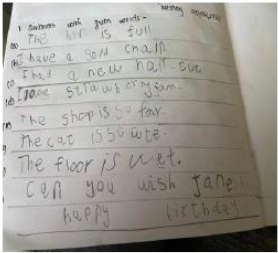 1 Sentences with given words-
The bin is full
I have a gold chain
I had a new hair-cut
I love strawberry jam.
The shop is so far.
The cat is so cute.
The floor is wet.
Can you wish Jane
happy birthday